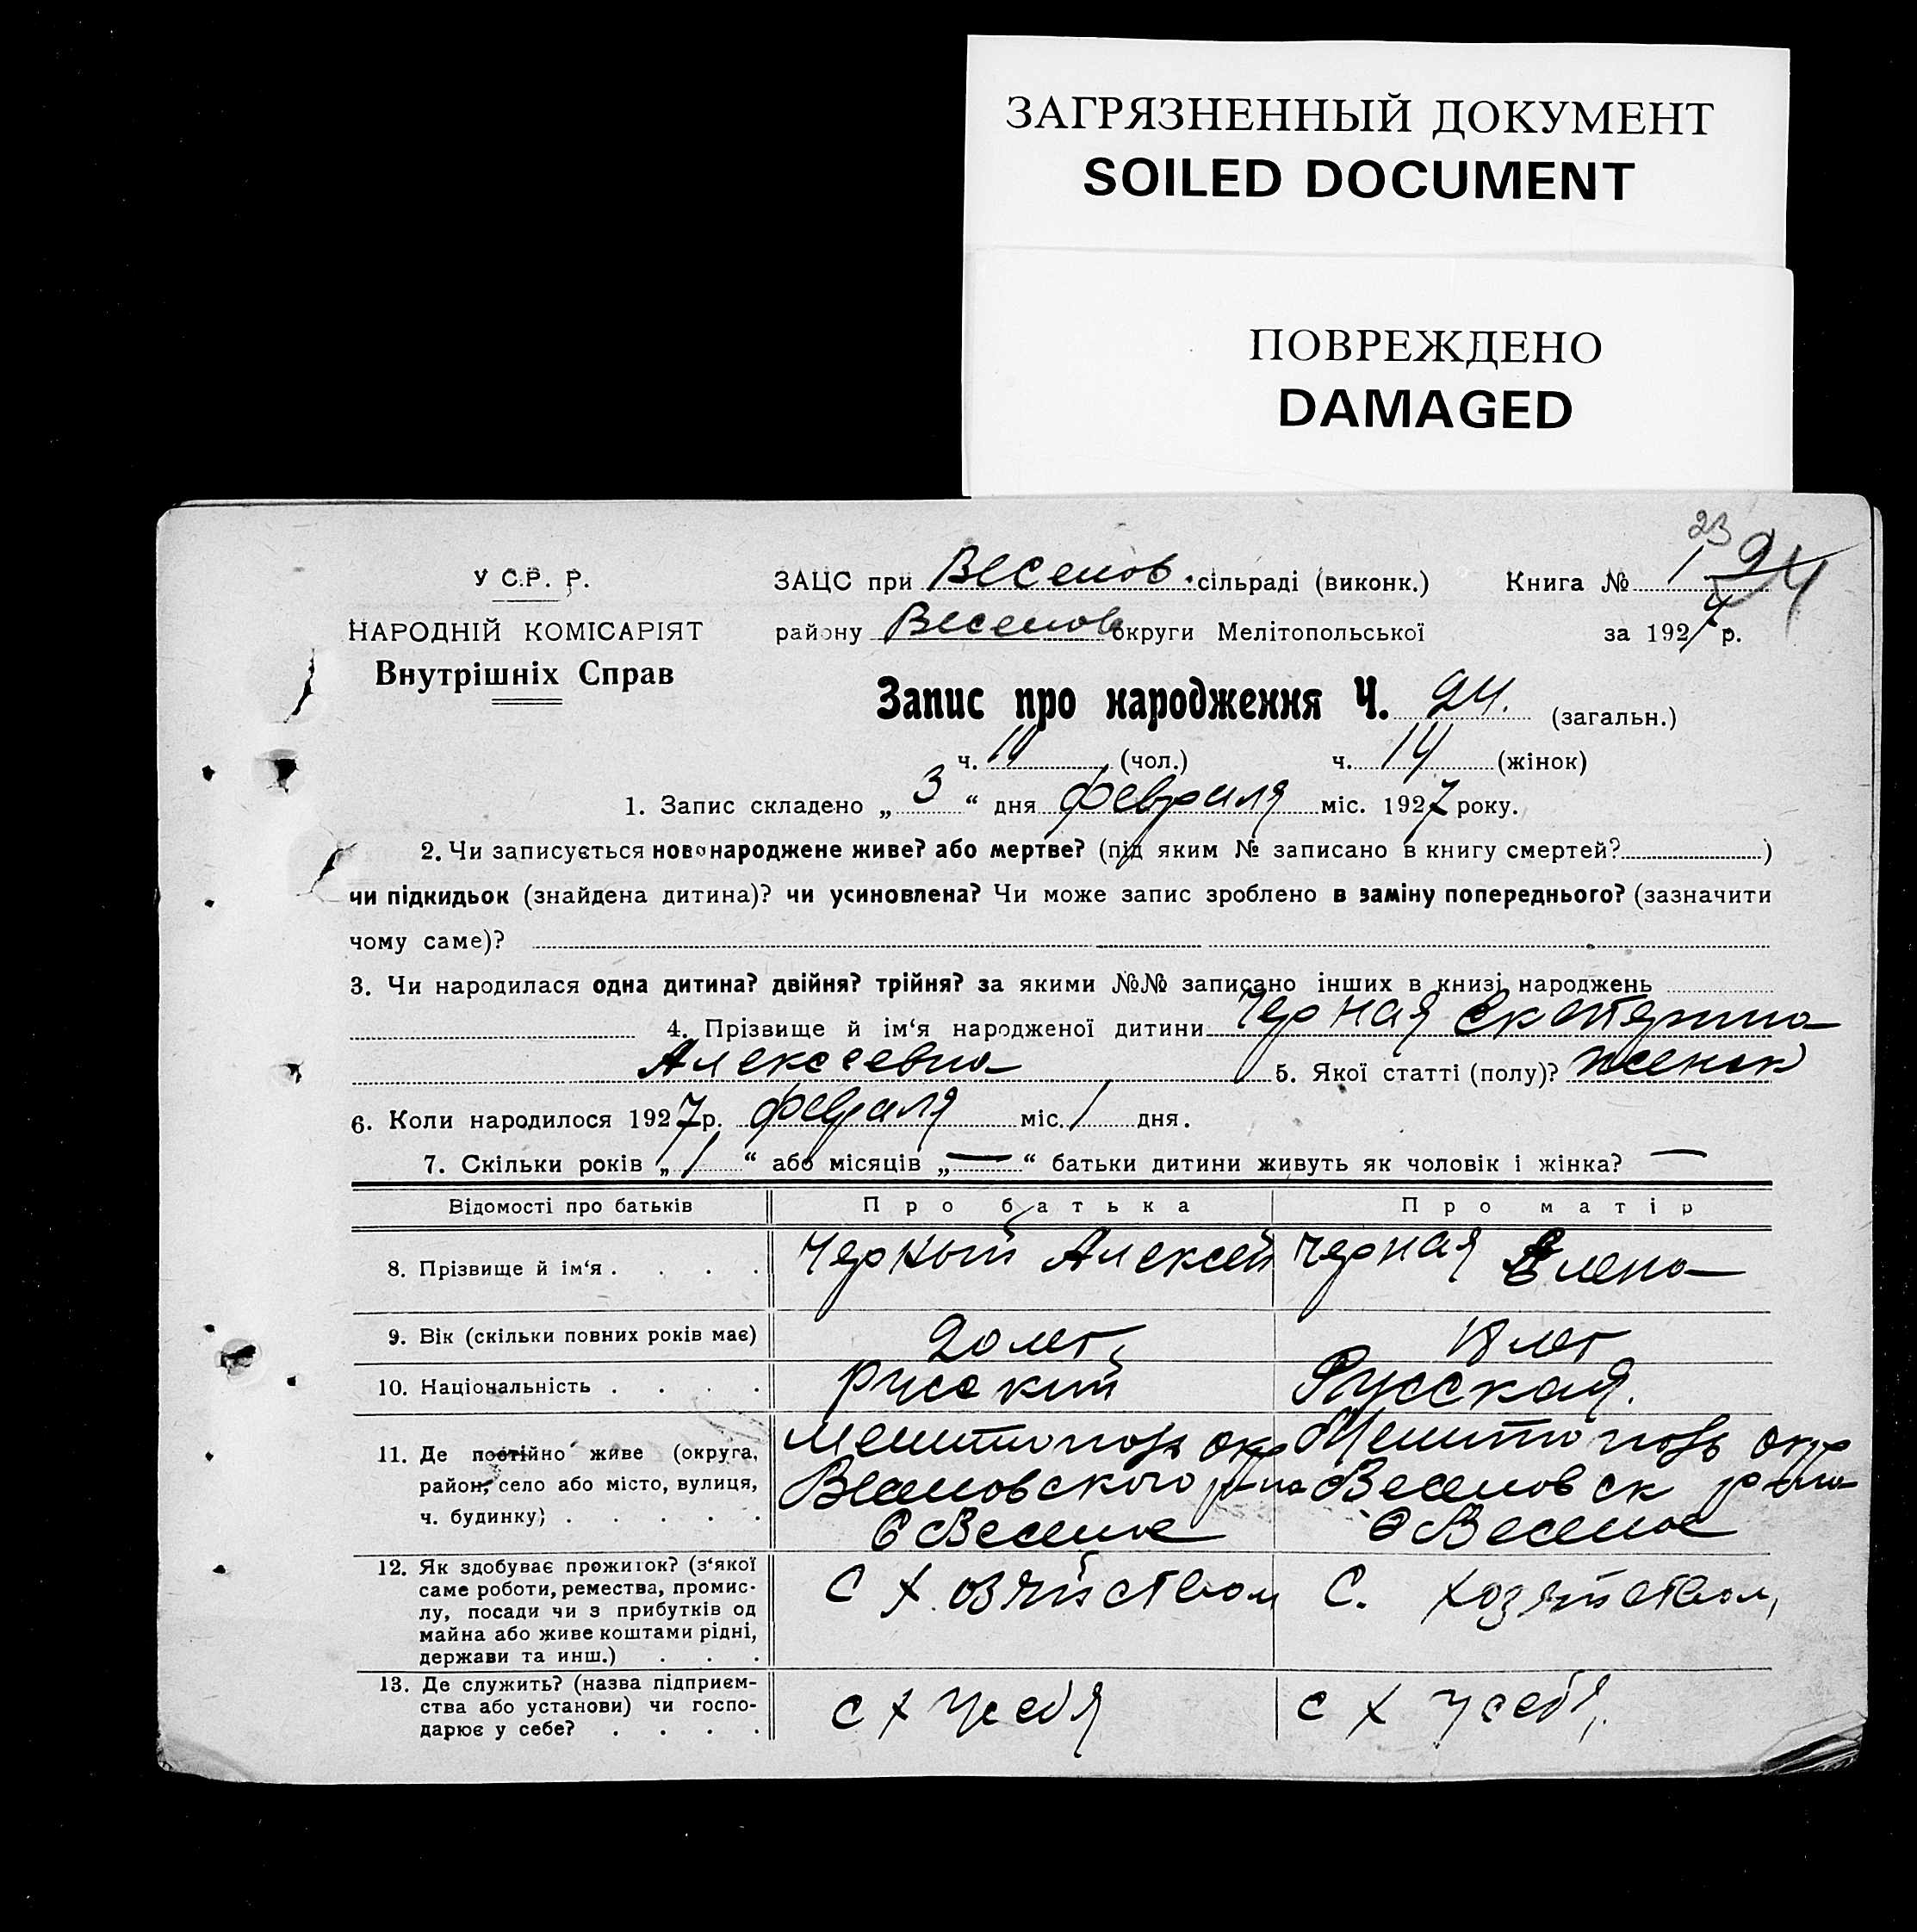 ЗАГРЯЗНЕННЫЙ ДОКУМЕНТ
SOILED DOCUMENT
ПОВРЕЖДЕНО
DAMAGED
23
24
У С.Р. Р.
ЗАЦС при Веселов. сільраді (виконк.) Книга № 1
НАРОДНІЙ КОМІСАРІЯТ
району Веселов округи Мелітопольської за 1927 р.
Внутрішніх Справ
Запис про народження Ч. 24. (загальн.)
ч. (чол.) ч. 14 (жінок)
1. Запис складено „ 3 “ дня февраля міс. 1927 року.
2. Чи записується новонароджене живе? або мертве? (під яким № записано в книгу смертей? )
чи підкидьок (знайдена дитина)? чи усиновлена? Чи може запис зроблено в заміну попереднього? (зазначити
чому саме)?
3. Чи народилася одна дитина? двійня? трійня? за якими №№ записано інших в книзі народжень
4. Прізвище й ім‘я народженої дитини Черная Екатерина
Алексеевна 5. Якої статті (полу)? женск
6. Коли народилося 1927 р. февраля міс. 1 дня.
7. Скільки років „ 1 “ або місяців „ — “ батьки дитини живуть як чоловік і жінка? —
Відомості про батьків Про батька Про матір
8. Прізвище й ім‘я . . . . Черный Алексей Черная Елена
9. Вік (скільки повних років має) 20 лет, 18 лет
10. Національність . . . . русский Русская.
11. Де постійно живе (округа, Мелитополь окр Мелитополь окр
район, село або місто, вулиця, Веселовского р-на Веселовск р-на
ч. будинку) . . . . . С Веселое С Веселое
12. Як здобуває прожиток? (з‘якої
саме роботи, ремества, промис- С хозяйством С. хозяйством,
лу, посади чи з прибутків од
майна або живе коштами рідні,
держави та инш.) . . .
13. Де служить? (назва підприєм-
ства або установи) чи госпо- с х у себя с х у себя,
дарює у себе? . . . .